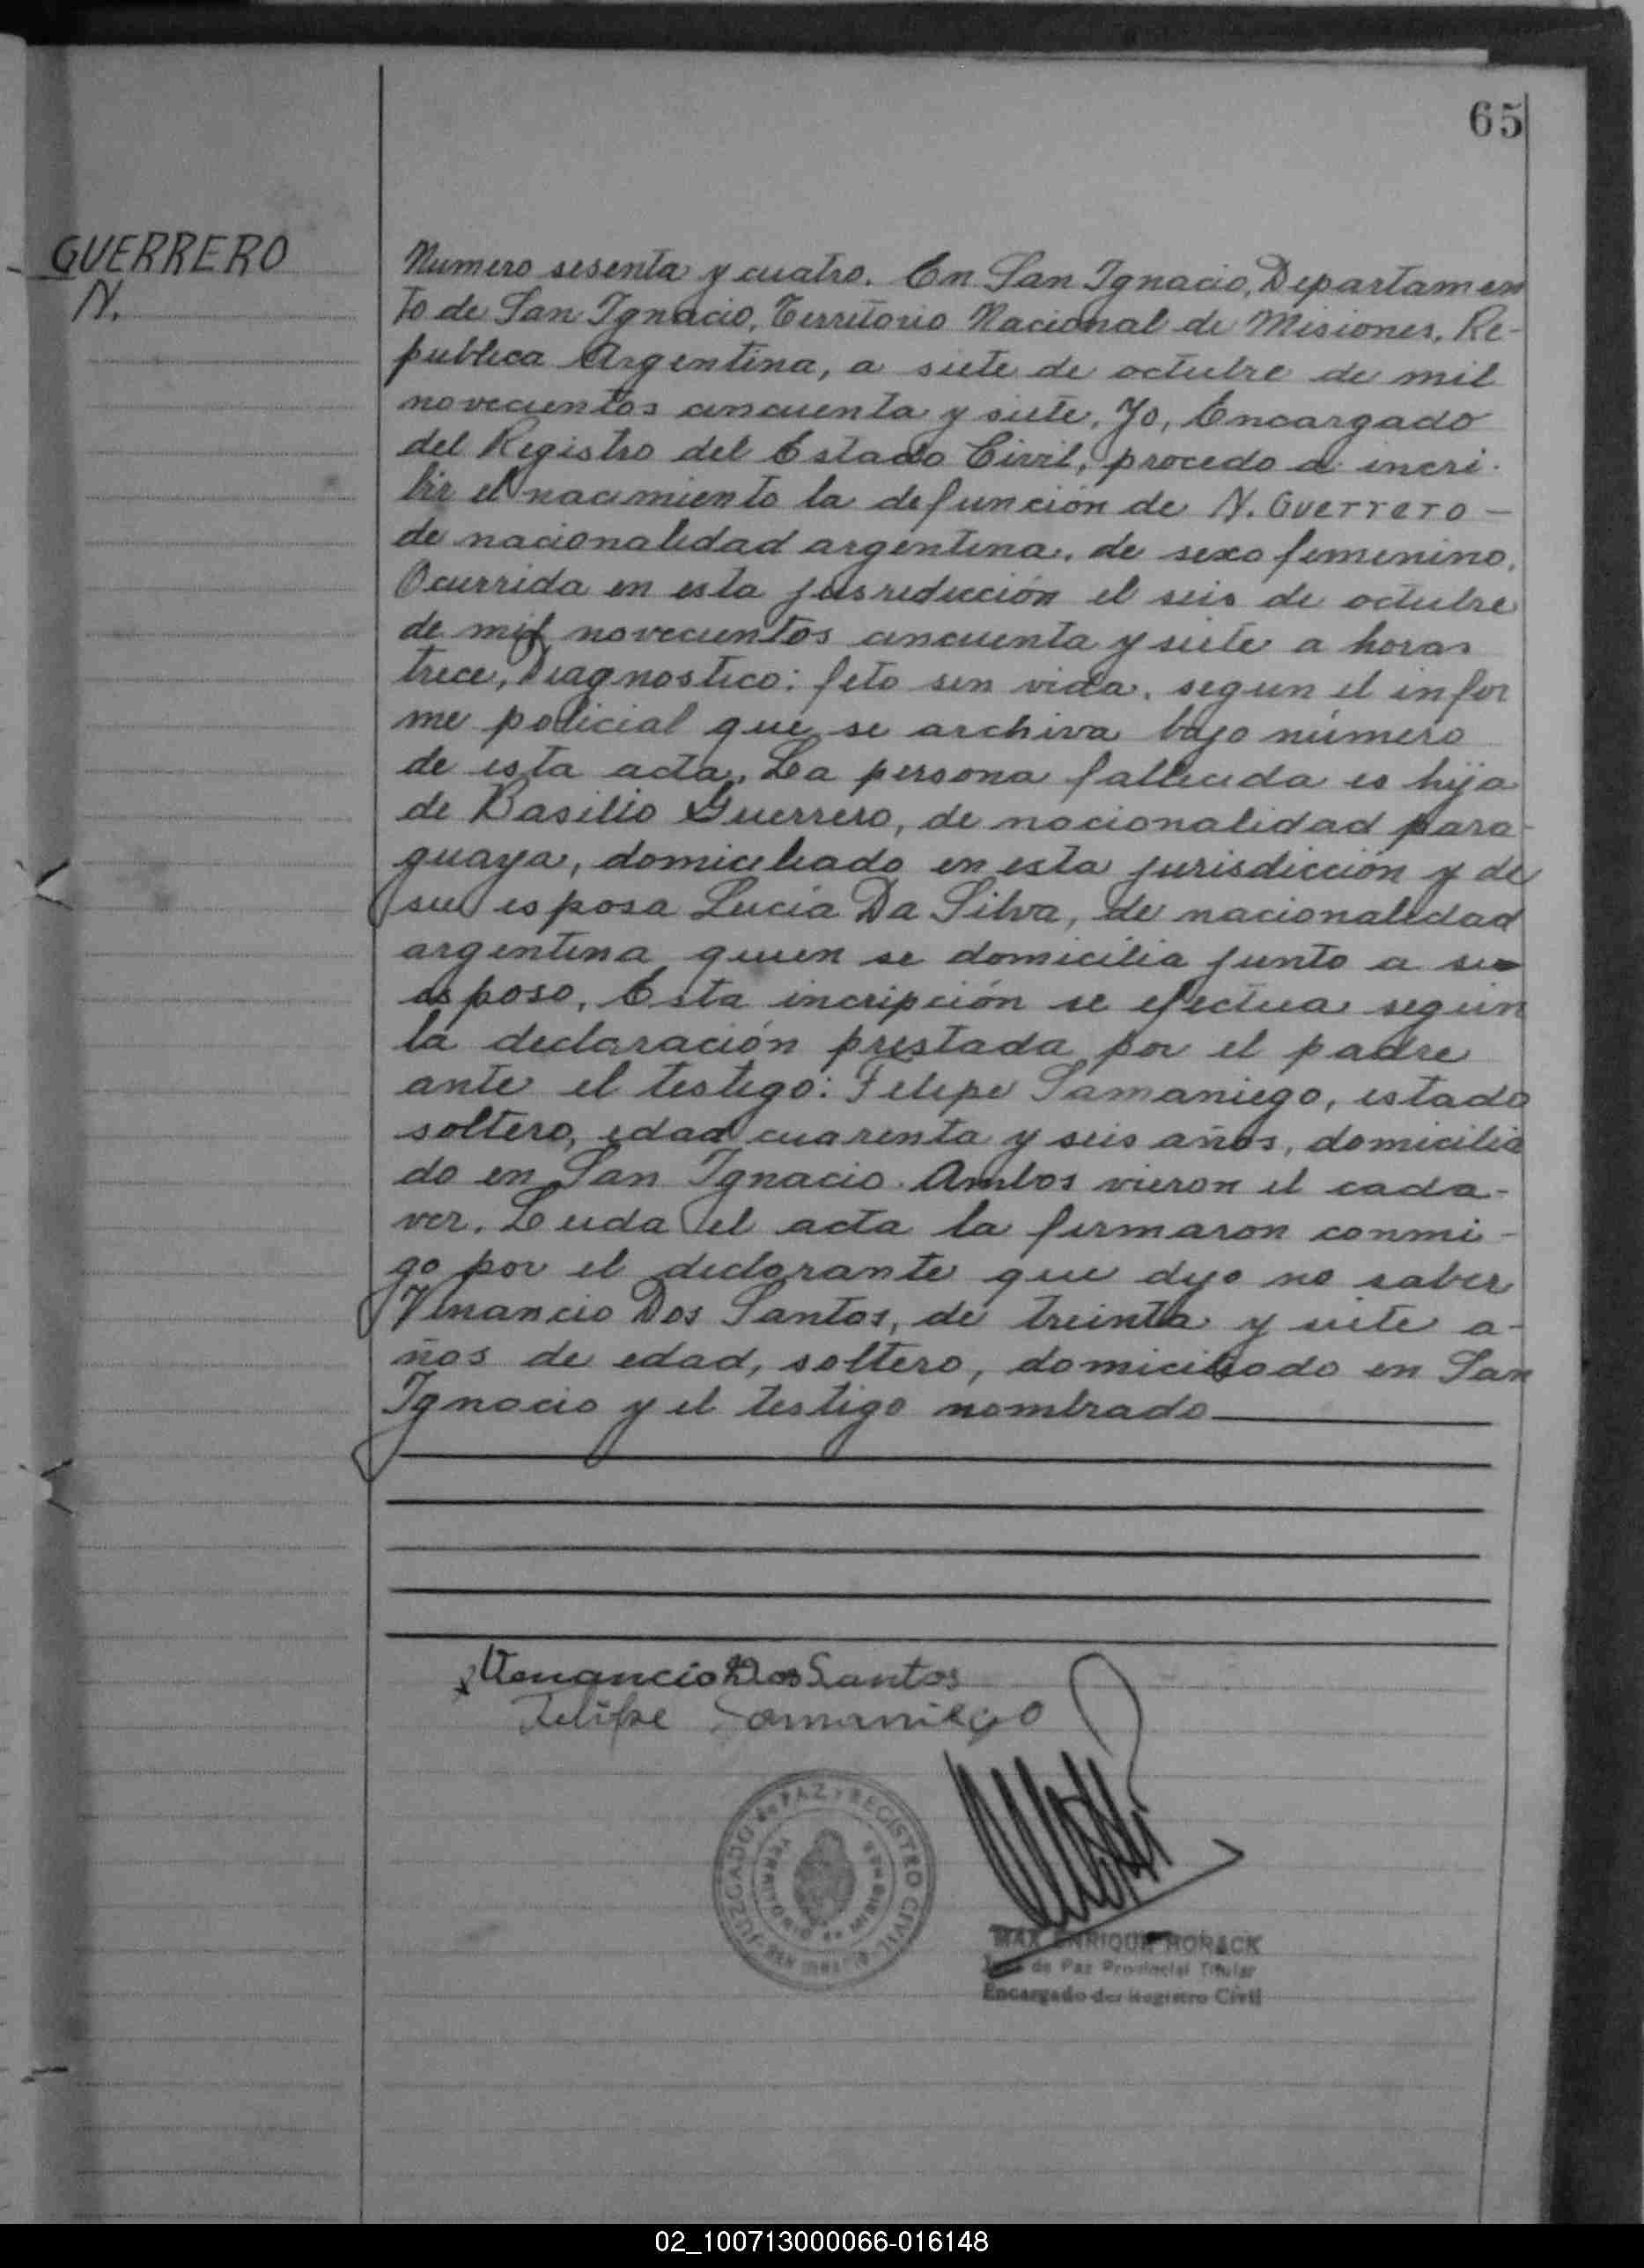 65
GUERRERO
N.
Numero sesenta y cuatro. En San Ignacio, Departamen
to de San Ignacio, Territorio Nacional de Misiones, Re-
publica Argentina, a siete de octubre de mil
novecientos cincuenta y siete, Yo, Encargado
del Registro del Estado Civil, procedo a incri-
bir el nacimiento la defunción de N. Guerrero —
de nacionalidad argentina, de sexo femenino,
Ocurrida en esta jusredicción el seis de octubre
de mil novecientos cincuenta y siete a horas
trece, Diagnostico: feto sin vida, segun el infor
me policial que se archiva bajo número
de esta acta, La persona fallecida es hija
de Basilio Guerrero, de nacionalidad para-
guaya, domiciliado en esta jurisdicción y de
su esposa Lucía Da Silva, de nacionalidad
argentina quien se domicilia junto a su
esposo, Esta incripción se efectua según
la declaración prestada por el padre
ante el testigo: Felipe Samaniego, estado
soltero, edad cuarenta y seis años, domicilia
do en San Ignacio. Ambos vieron el cada-
ver. Leida el acta la firmaron conmi-
go por el declarante que dijo no saber
Venancio Dos Santos, de treinta y siete a-
ños de edad, soltero, domiciliado en San
Ignacio y el testigo nombrado
Venancio Dos Santos
Felipe Samaniego
JUZGADO de PAZ Y REGISTRO CIVIL
SAN IGNACIO
TERRITORIO de MISIONES
MAX ENRIQUE HORACK
Juez de Paz Provincial Titular
Encargado del Registro Civil
02_100713000066-016148